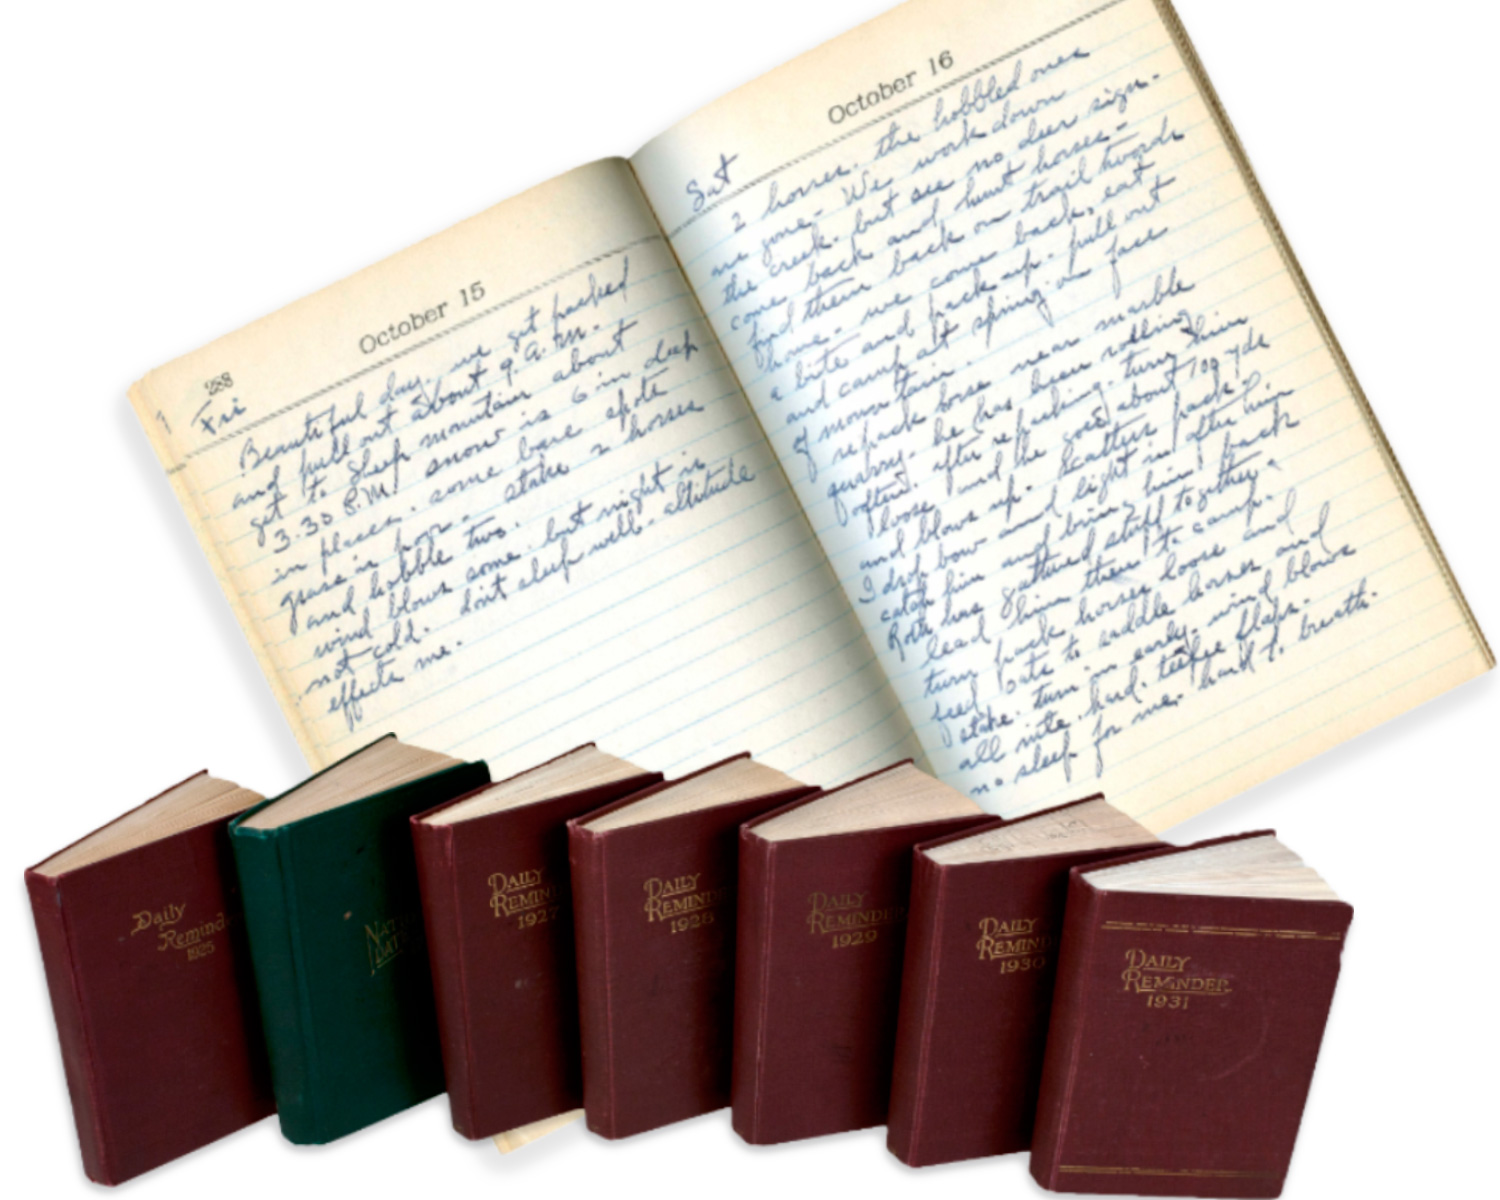 288
October 15
Fri
Beautiful day. we get packed
and pull out about 9 A.M.
get to Sheep mountain about
3.30 P.M. snow is 6 in deep
in places. some bare spots
grass is poor. stake 2 horses
and hobble two.
wind blows some. but night is
not cold. dont sleep well. altitude
effects me.
October 16
Sat
2 horses. the hobbled ones
are gone. We work down
the creek. but see no deer sign.
come back and hunt horses.
find them back on trail towards
home. we come back, eat
a bite and pack up. pull out
and camp at spring on face
of mountain. near marble
repack horse
quarry. he has been rolling
often. after repacking. turn him
loose and he goes about 100 yds
and blows up. scatters pack.
I drop bow and light in after him
catch him and bring him back
Roth has gathered stuff together.
lead him then to camp.
turn pack horses loose and
feed oats to saddle horses and
stake. turn in early. wind blows
all nite. hard. teepee flaps.
no sleep for me. hard to breath.
Daily
Remind
1925
NAT
DA
DAILY
REMIN
1927
DAILY
REMIND
1928
DAILY
REMINDER
1929
DAILY
REMIND
1930
DAILY
REMINDER
1931